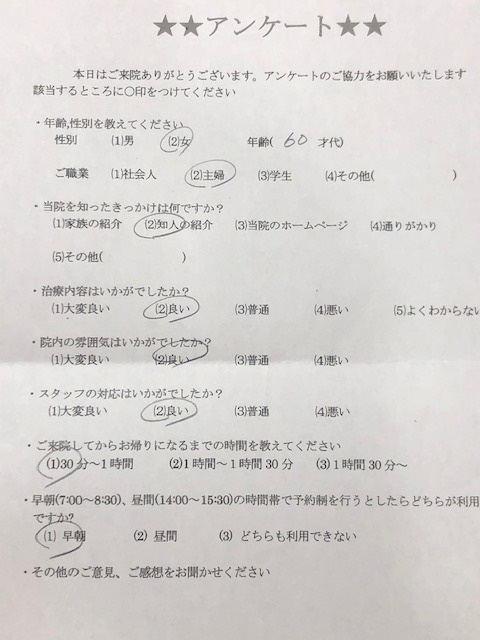 ★★アンケート★★
本日はご来院ありがとうございます。アンケートのご協力をお願いいたします
該当するところに〇印をつけてください
・年齢,性別を教えてください
性別 (1)男 (2)女 年齢( 60 才代)
ご職業 (1)社会人 (2)主婦 (3)学生 (4)その他( )
・当院を知ったきっかけは何ですか?
(1)家族の紹介 (2)知人の紹介 (3)当院のホームページ (4)通りがかり
(5)その他( )
・治療内容はいかがでしたか?
(1)大変良い (2)良い (3)普通 (4)悪い (5)よくわからない
・院内の雰囲気はいかがでしたか?
(1)大変良い (2)良い (3)普通 (4)悪い
・スタッフの対応はいかがでしたか?
(1)大変良い (2)良い (3)普通 (4)悪い
・ご来院してからお帰りになるまでの時間を教えてください
(1)30分～1時間 (2)1時間～1時間30分 (3)1時間30分～
・早朝(7:00～8:30)、昼間(14:00～15:30)の時間帯で予約制を行うとしたらどちらが利用
ですか?
(1) 早朝 (2) 昼間 (3) どちらも利用できない
・その他のご意見、ご感想をお聞かせください